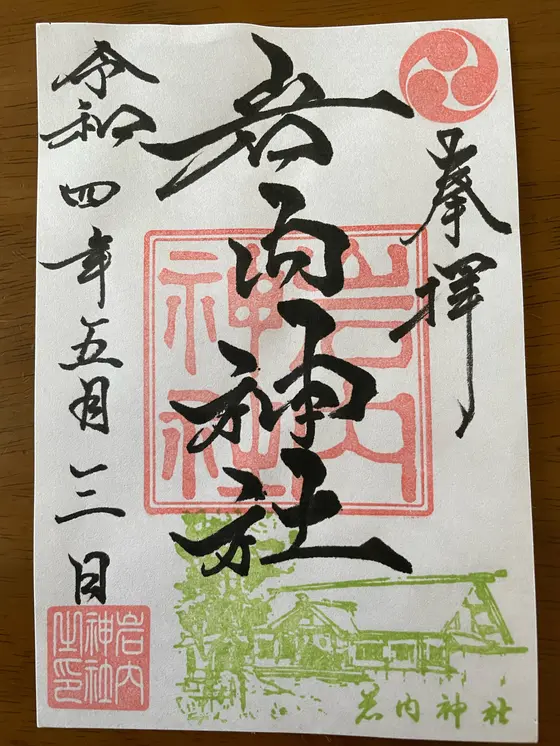 奉拝
岩内神社
岩内
神社
令和四年五月三日
岩内
神社
之印
岩内神社